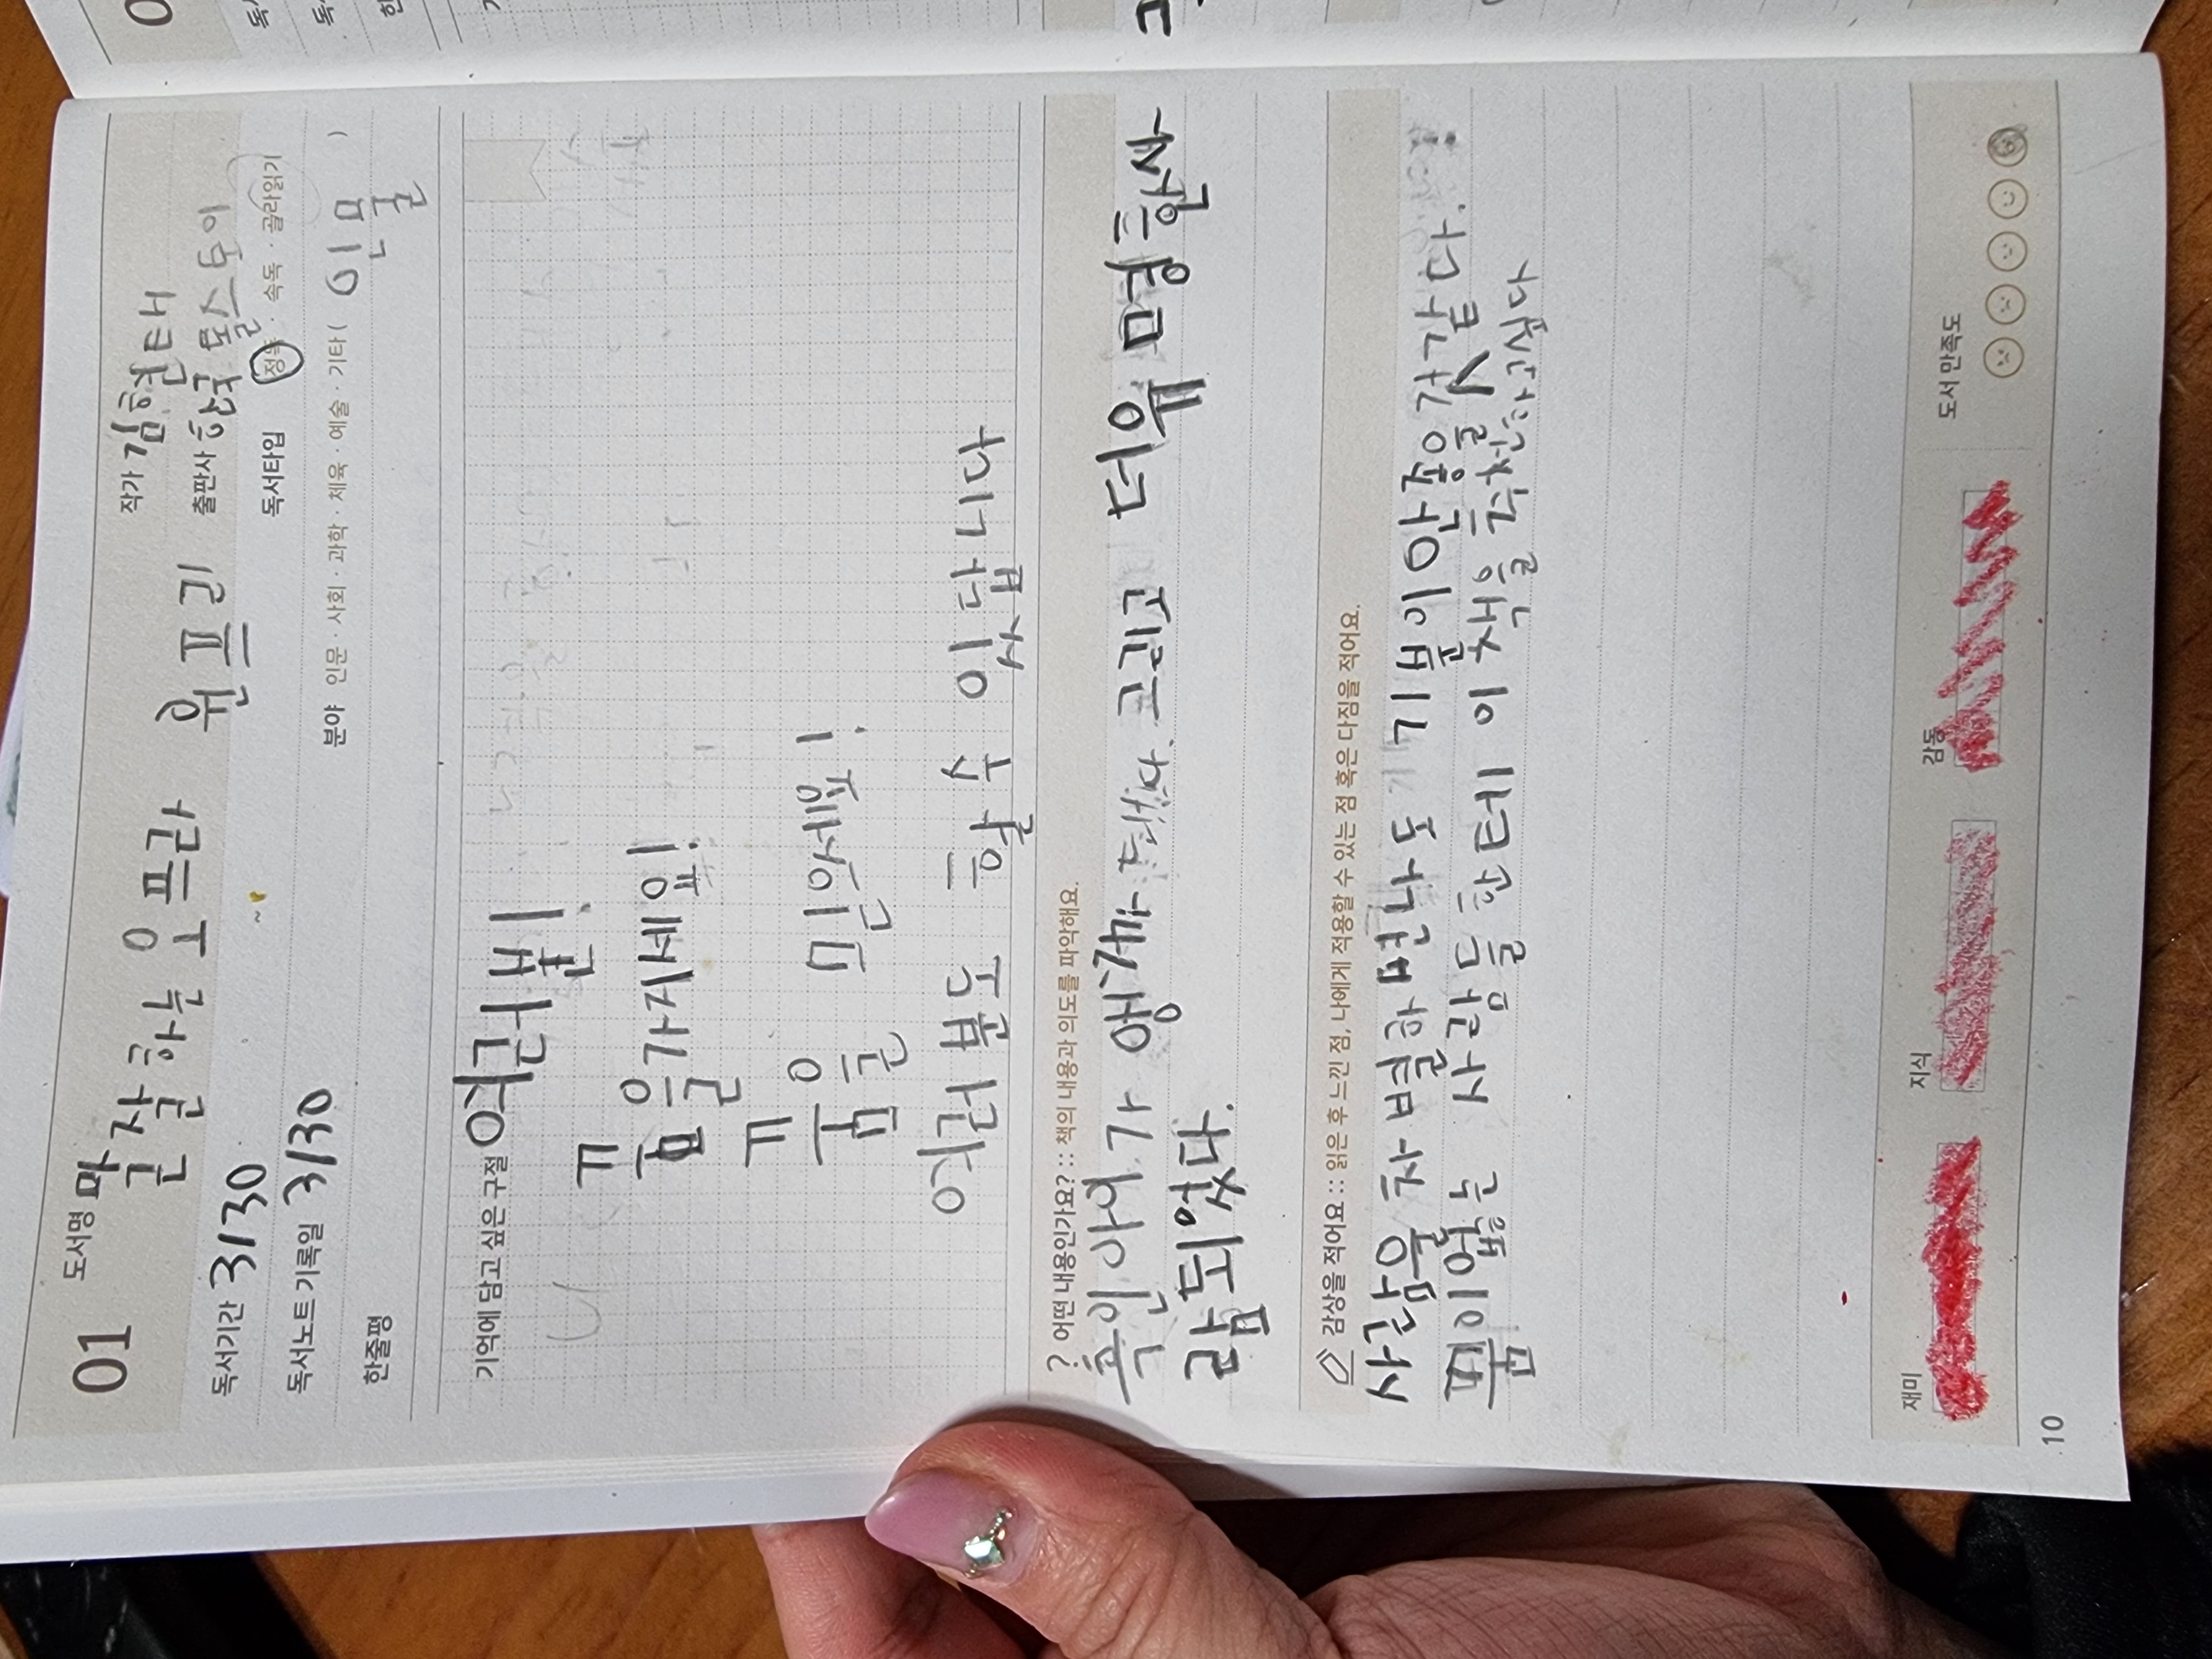 01 도서명 말 잘 하는 오프라 윈프리
작가 김현태
출판사 한국 톨스토이
독서기간 3/30 ~
독서타입 정독 · 속독 · 골라읽기
독서노트 기록일 3/30
분야 인문 · 사회 · 과학 · 체육 · 예술 · 기타 ( 인물 )
한줄평
기억에 담고 싶은 구절 여러분!
꿈을 가지세요!
꿈을 믿으세요!
여러분도 할 수 있답니다
? 어떤 내용인가요? :: 책의 내용과 의도를 파악해요.
흑인 아이가 앵커가 됐다. 그리고 더유명한사
람되었다.
감상을 적어요 :: 읽은 후 느낀 점, 나에게 적용할 수 있는 점 혹은 다짐을 적어요.
사람을 차별하면나도 기분이 안좋을것같다.
꿈이없는 사람들한테 이 책을 추천하고싶다
재미
지식
감동
도서 만족도
10